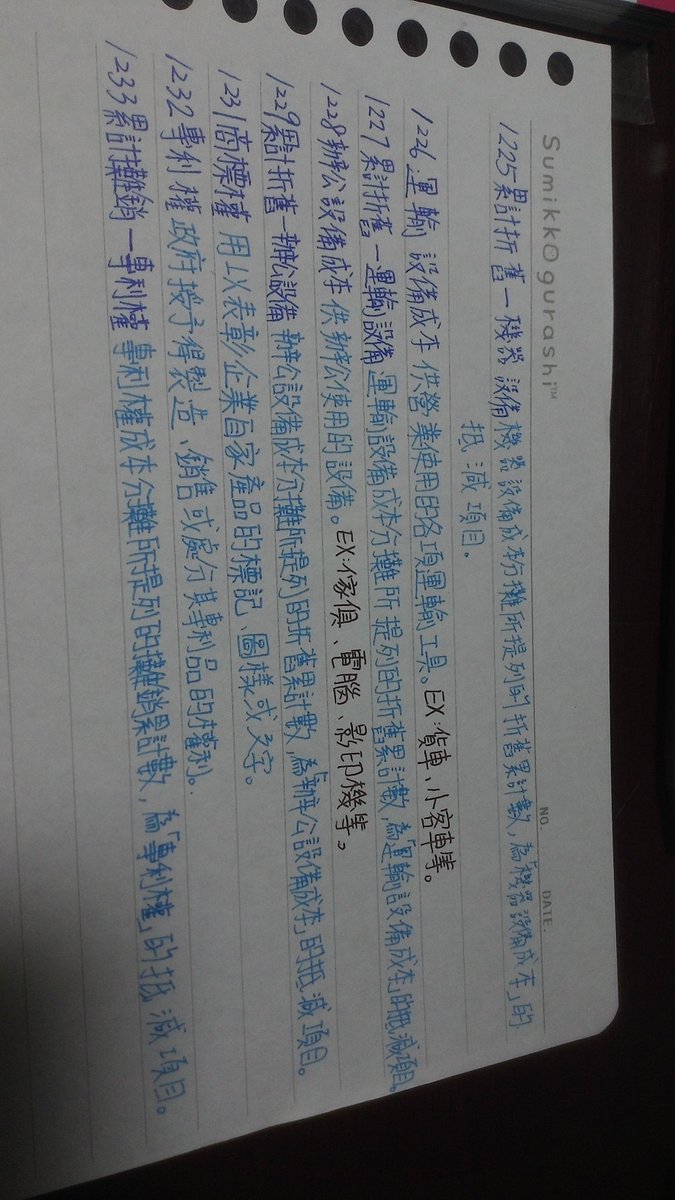 Sumikkogurashi™
NO.
DATE.
1225累計折舊－機器設備 機器設備成本分攤所提列的折舊累計數,為「機器設備成本」的
抵減項目。
1226運輸設備成本 供營業使用的各項運輸工具。EX:貨車、小客車等。
1227累計折舊－運輸設備 運輸設備成本分攤所提列的折舊累計數,為「運輸設備成本」的抵減項目。
1228辦公設備成本 供辦公使用的設備。EX:傢俱、電腦、影印機等。
1229累計折舊－辦公設備 辦公設備成本分攤所提列的折舊累計數,為「辦公設備成本」的抵減項目。
1231商標權 用以表彰企業自家產品的標記、圖樣或文字。
1232專利權 政府授予得製造、銷售或處分其專利品的權利。
1233累計攤銷－專利權 專利權成本分攤所提列的攤銷累計數,為「專利權」的抵減項目。